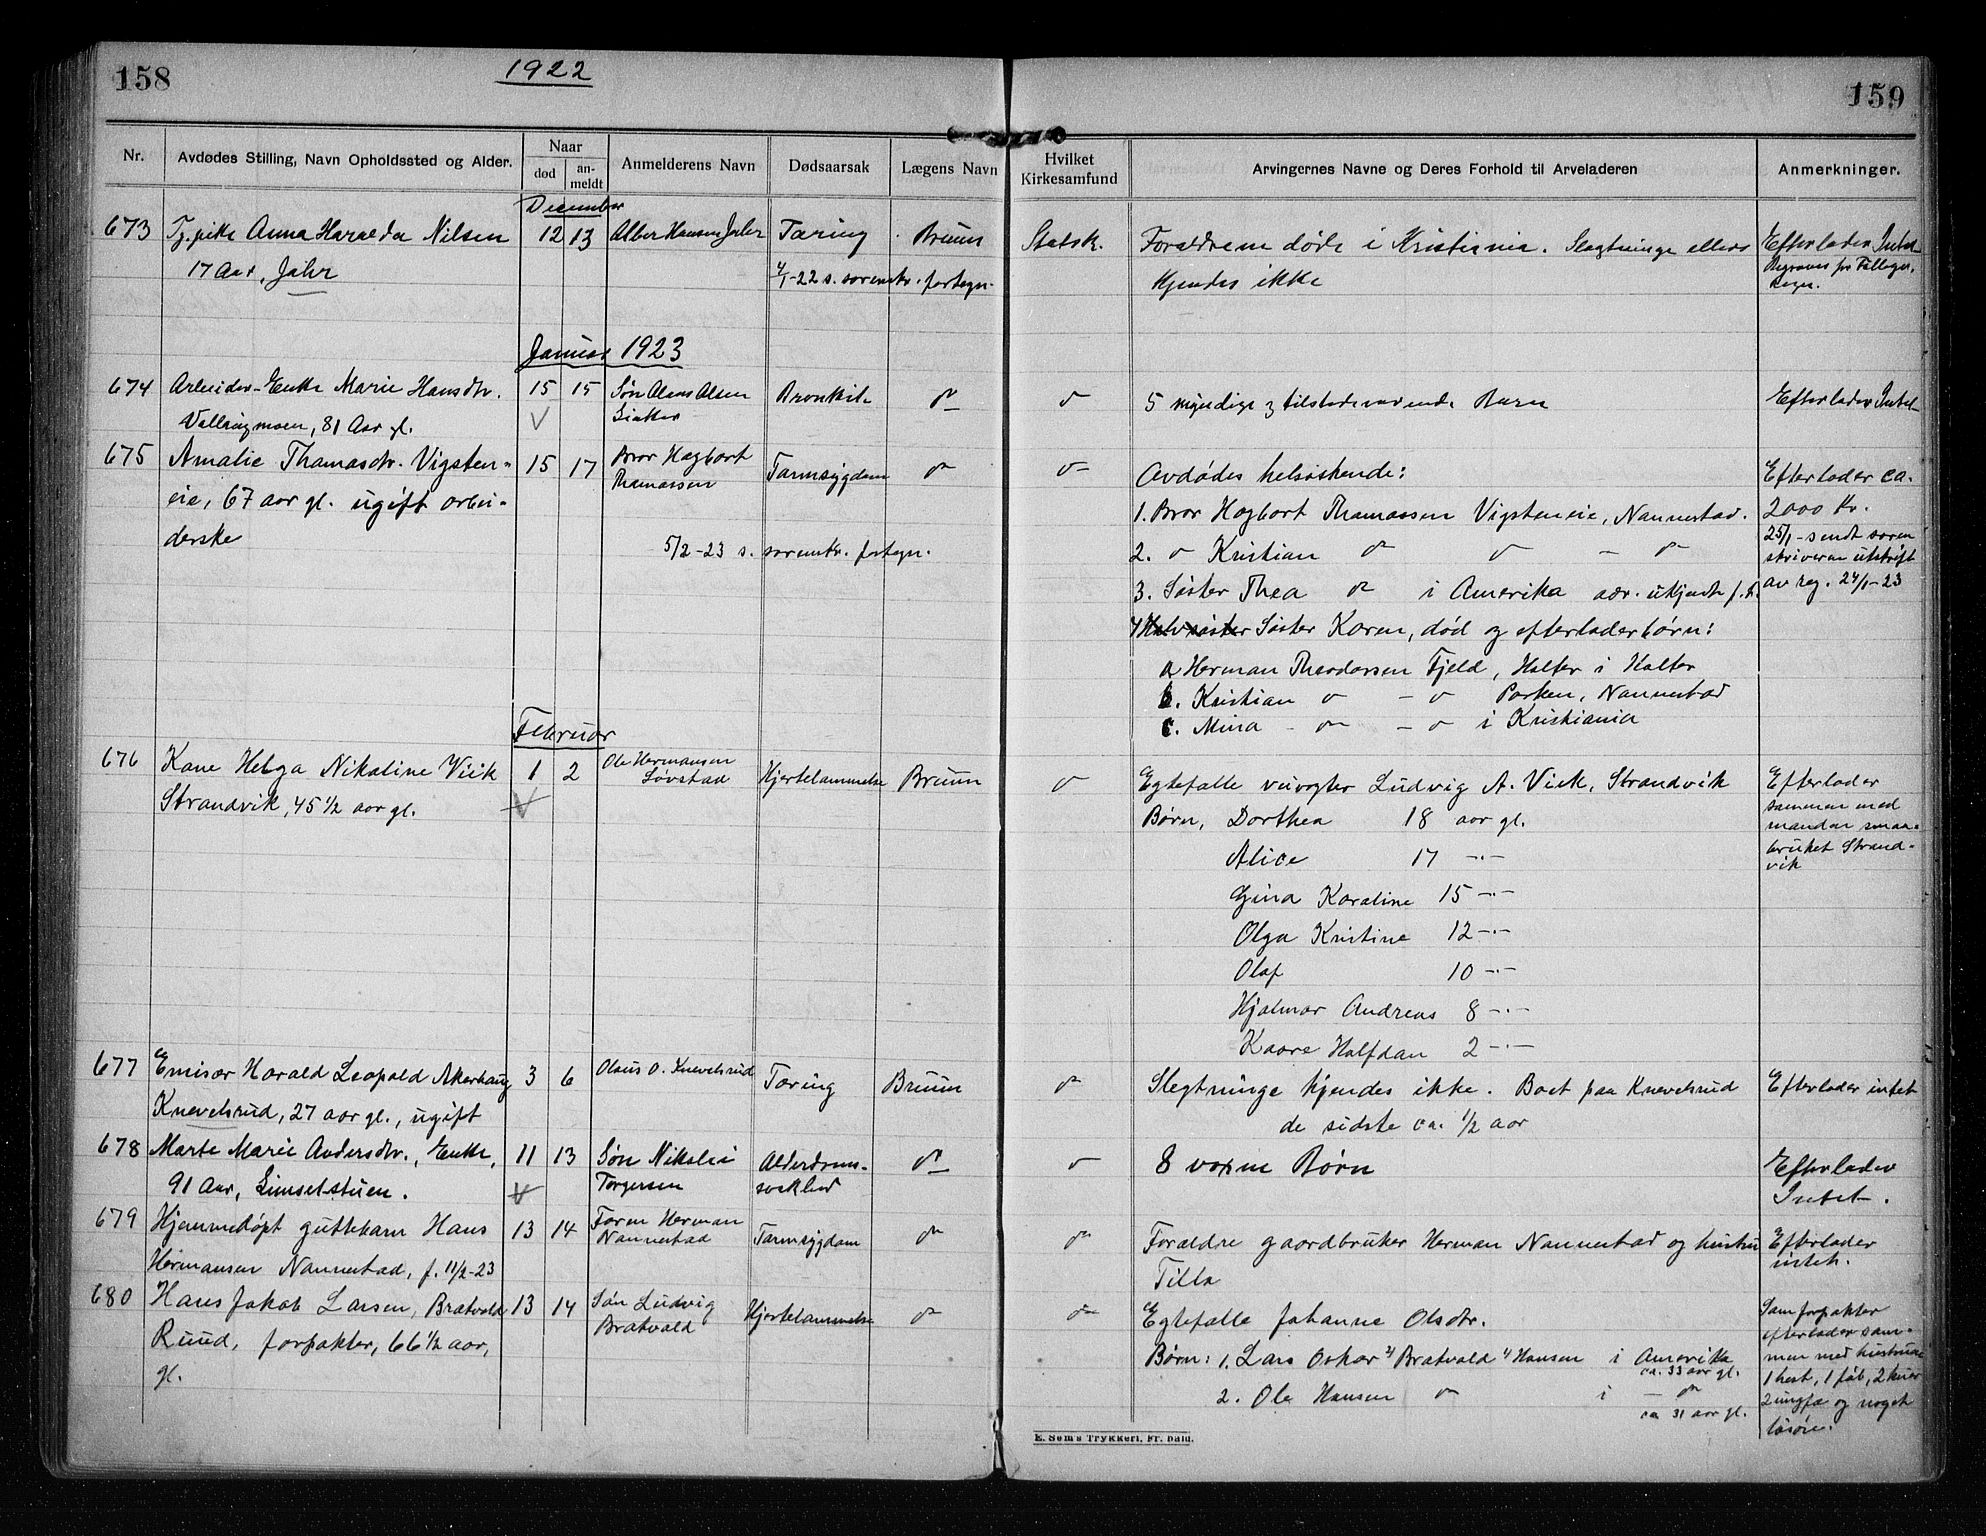 158
1922
159
Nr.
Avdødes Stilling, Navn Opholdssted og Alder.
Naar
død
an-
meldt
Anmelderens Navn
Dødsaarsak
Lægens Navn
Hvilket
Kirkesamfund
Arvingernes Navne og Deres Forhold til Arveladeren
Anmerkninger.
December
673 Tj.pike Anna Haralda Nilsen 12 13 Tæring Bruun Statsk. Forældrene døde i Kristiania. Slegtninge ellers Efterlader Intet
17 Aar, Jahr 4/1-22 s. sorenskr. fortegn. kjendes ikke
Januar 1923
674 Arbeider-Enke Marie Hansdtr. 15 15 Søn Olaus Olsen Bronkit do do 5 myndige tilstedeværende Barn Efterlader Intet
Vollaugmoen, 81 Aar gl.
675 Amalie Thomasdtr. Vigsten- 15 17 Bror Hagbart Tarmsygdom do do Avdødes helsøskende: Efterlader ca.
eie, 67 aar gl. ugift arbei- Thomassen 1. Bror Hagbart Thomassen Vigsteneie, Nannestad. 2000 Kr.
derske 5/2-23 s. sorenskr. fortegn. 2. do Kristian do do - do 25/1-sendt soren
skriveren utskrift
3. Søster Thea do i Amerika adr. ukjendt av reg. 24/1-23
4 Halvsøster Søster Karen, død og efterlader børn:
a Herman Theodorsen Fjeld, Holter i Holter
b. Kristian do - do Parken, Nannestad
c. Mina - do - do i Kristiania
Februar
676 Kone Helga Nikoline Viik 1 2 Ole Hermansen Løvstad Hjertelammelse Bruun do Egtefælle veivogter Ludvig A. Viik, Strandvik Efterlader
Strandvik, 45 1/2 aar gl. Børn, Dorthea 18 aar gl. sammen med
manden smaa-
Alice 17 -"- bruket Strand-
vik
Gina Karoline 15 -"-
Olga Kristine 12 -"-
Olaf 10 -"-
Hjalmar Andreas 8 -"-
Kaare Halfdan 2 -"-
677 Emisær Harald Leopold Akerhaug 3 6 Olaus O. Knevelsrud Tæring Bruun do Slegtninge kjendes ikke. Boet paa Knevelsrud Efterlader intet
Knevelsrud, 27 aar gl., ugift de sidste ca. 1/2 aar
678 Marte Marie Andersdtr., Enke, 11 13 Søn Nikolai Alderdoms- do do 8 voxne Børn Efterlader
91 Aar, Limselstuen. Torgersen svækhed Intet.
679 Hjemmedøpt guttebarn Hans 13 14 Faren Herman Tarmsygdom do do Forældre gaardbruker Herman Nannestad og hustru Efterlader
Hermansen Nannestad, f. 11/2-23 Nannestad Tilla intet.
680 Hans Jakob Larsen, Bratvold 13 14 Søn Ludvig Hjertelammelse do do Egtefælle Johanne Olsdtr. Som forpakter
Ruud, forpakter, 66 1/2 aar, Bratvold efterlader sam-
gl. Børn: 1. Lars Oskar Bratvold Hansen i Amerika men med hustruen
ca. 33 aar gl. 1 hest, 1 føl, 2 kuer
2. Ole Hansen do i - do 2 ungfæ og noget
ca 31 aar gl. løsøre.
E. Sem's Trykkeri, Fr. hald.